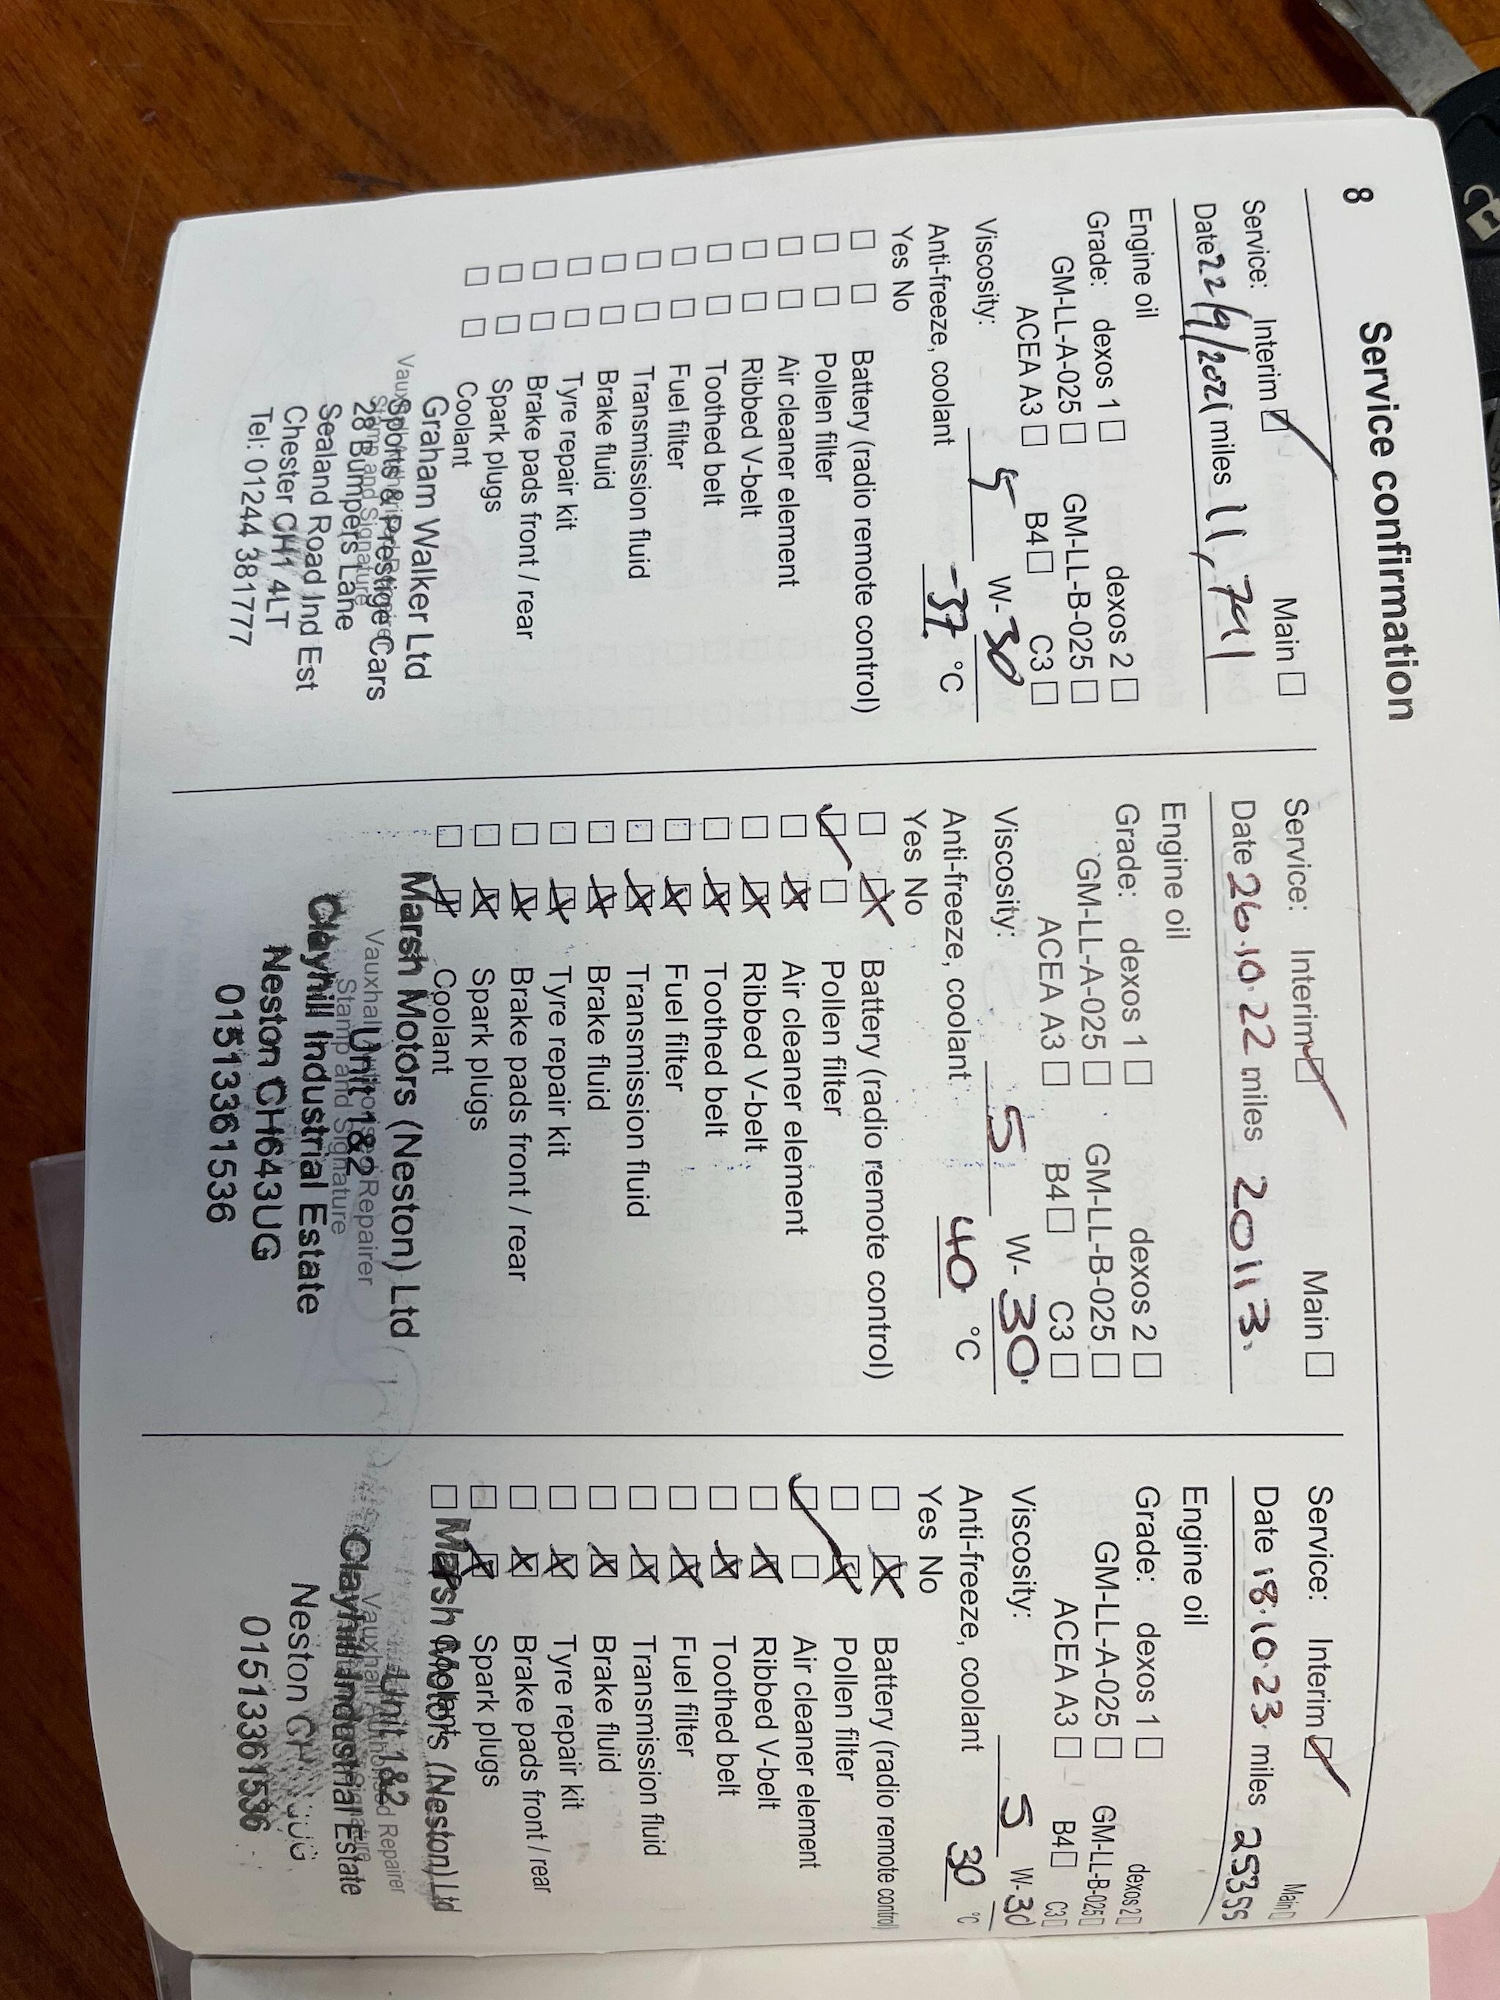 8
Service confirmation
Service: Interim Main
Date 22/9/2021 miles 11,741
Engine oil
Grade: dexos 1 dexos 2
GM-LL-A-025 GM-LL-B-025
ACEA A3 B4 C3
Viscosity: 5 W-30
Anti-freeze, coolant -37 °C
Yes No
Battery (radio remote control)
Pollen filter
Air cleaner element
Ribbed V-belt
Toothed belt
Fuel filter
Transmission fluid
Brake fluid
Tyre repair kit
Brake pads front / rear
Spark plugs
Coolant
Graham Walker Ltd
Sports & Prestige Cars
28 Bumpers Lane
Sealand Road Ind Est
Chester CH1 4LT
Tel: 01244 381777
Stamp and Signature
Service: Interim Main
Date 26.10.22 miles 20113.
Engine oil
Grade: dexos 1 dexos 2
GM-LL-A-025 GM-LL-B-025
ACEA A3 B4 C3
Viscosity: 5 W-30.
Anti-freeze, coolant 40 °C
Yes No
Battery (radio remote control)
Pollen filter
Air cleaner element
Ribbed V-belt
Toothed belt
Fuel filter
Transmission fluid
Brake fluid
Tyre repair kit
Brake pads front / rear
Spark plugs
Coolant
Marsh Motors (Neston) Ltd
Vauxhall Authorised Repairer
Unit 1&2
Stamp and Signature
Clayhill Industrial Estate
Neston CH643UG
01513361536
Service: Interim Main
Date 18.10.23 miles 25355
Engine oil
Grade: dexos 1 dexos 2
GM-LL-A-025 GM-LL-B-025
ACEA A3 B4 C3
Viscosity: 5 W-30
Anti-freeze, coolant 30 °C
Yes No
Battery (radio remote control)
Pollen filter
Air cleaner element
Ribbed V-belt
Toothed belt
Fuel filter
Transmission fluid
Brake fluid
Tyre repair kit
Brake pads front / rear
Spark plugs
Coolant
Marsh Motors (Neston) Ltd
Unit 1&2
Vauxhall Authorised Repairer
Clayhill Industrial Estate
Neston
01513361536